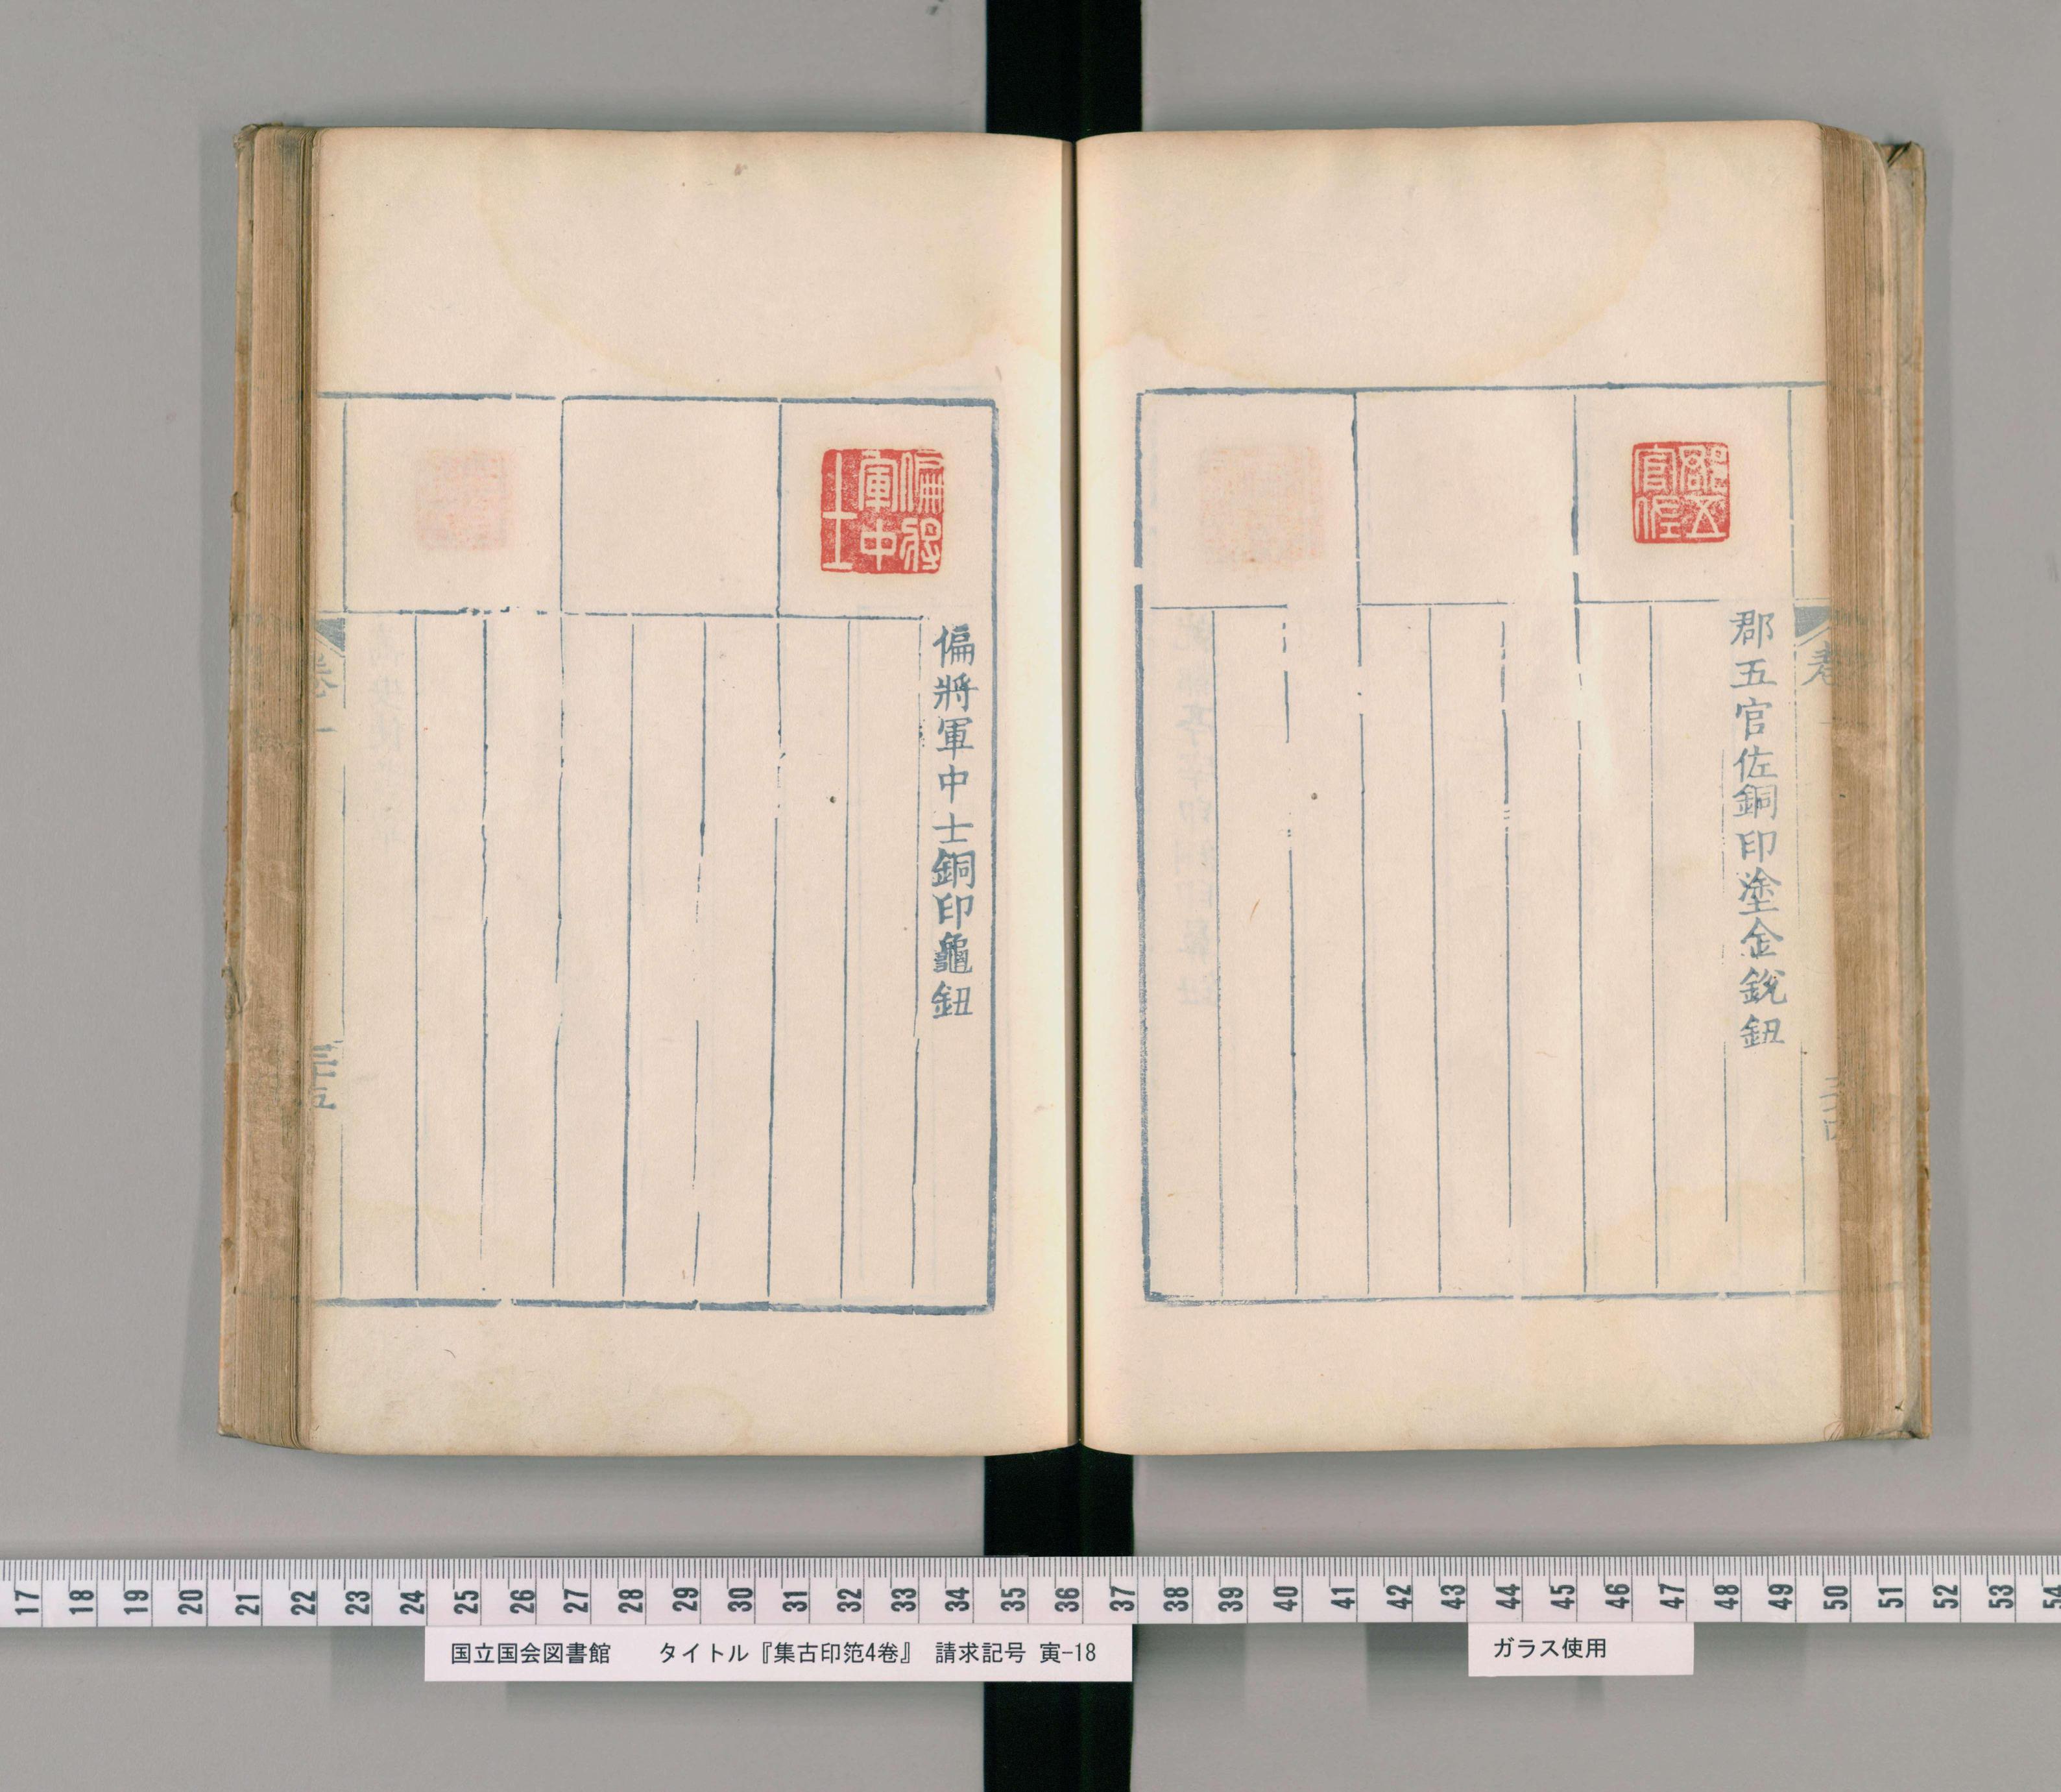 郡五官佐
郡五官佐銅印塗金鈕鈕
偏將軍中士
偏將軍中士銅印龜鈕
卷一
三十五
17 18 19 20 21 22 23 24 25 26 27 28 29 30 31 32 33 34 35 36 37 38 39 40 41 42 43 44 45 46 47 48 49 50 51 52 53 54
国立国会図書館 タイトル『集古印笵4巻』 請求記号 寅-18
ガラス使用